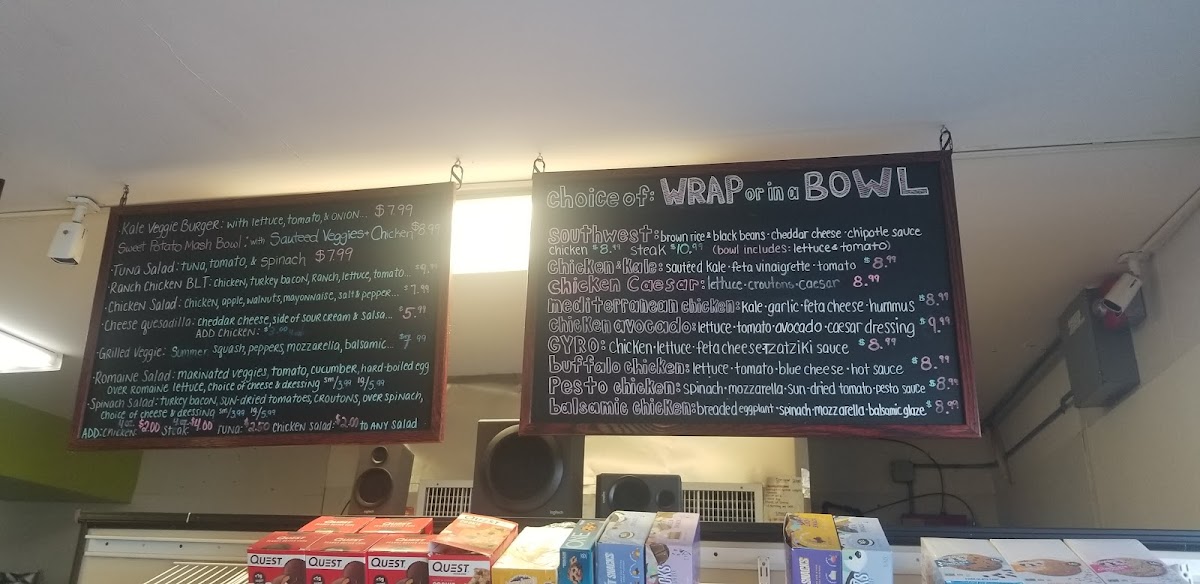 Kale Veggie Burger: with lettuce, tomato, & onion... $7.99
Sweet Potato Mash Bowl: with Sauteed Veggies + Chicken $8.99
·Tuna Salad: tuna, tomato, & spinach $7.99
·Ranch Chicken BLT: chicken, turkey bacon, ranch, lettuce, tomato...
·Chicken Salad: chicken, apple, walnuts, mayonnaise, salt & pepper... $7.99
·Cheese quesadilla: cheddar cheese, side of sour cream & salsa... $5.99
ADD CHICKEN:
·Grilled Veggie: summer squash, peppers, mozzarella, balsamic... $7.99
·Romaine Salad: marinated veggies, tomato, cucumber, hard-boiled egg
over romaine lettuce, choice of cheese & dressing sm/3.99 lg/5.99
·Spinach Salad: turkey bacon, sun-dried tomatoes, croutons, over spinach,
choice of cheese & dressing sm/3.99 lg/5.99
ADD: chicken: 4oz $2.00 steak: 4oz $4.00 tuna: $2.50 chicken salad: $2.00 to any salad
choice of: WRAP or in a BOWL
Southwest: brown rice & black beans · cheddar cheese · chipotle sauce
chicken $8.99 steak $10.99 (bowl includes: lettuce & tomato)
Chicken & Kale: sauteed kale · feta vinaigrette · tomato $8.99
Chicken Caesar: lettuce · croutons · caesar 8.99
mediterranean chicken: kale · garlic · feta cheese · hummus $8.99
chicken avocado: lettuce · tomato · avocado · caesar dressing $9.99
GYRO: chicken · lettuce · feta cheese · TZATZIKI sauce $8.99
buffalo chicken: lettuce · tomato · blue cheese · hot sauce $8.99
Pesto chicken: spinach · mozzarella · sun-dried tomato · pesto sauce $8.99
balsamic chicken: breaded eggplant · spinach · mozzarella · balsamic glaze $8.99
logitech
QUEST QUEST QUEST QUEST